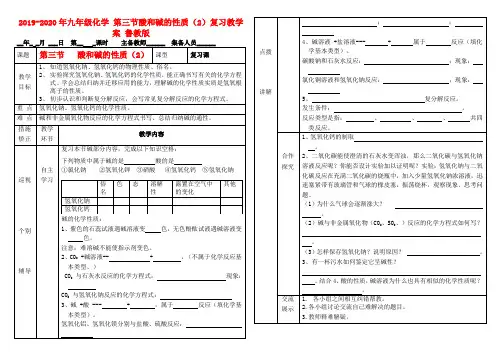 2019-2020年九年级化学 第三节酸和碱的性质（2）复习教学案 鲁教版
__年__月___日 第__ __课时 主备教师______ 集备人员______
课题 第三节 酸和碱的性质（2） 课型 复习课
教学目标
1、知道氢氧化钠、氢氧化钙的物理性质、俗名。
2、实验探究氢氧化钠、氢氧化钙的化学性质，能正确书写有关的化学方程式。学会总结归纳并迁移应用的能力。理解碱的化学性质实质是氢氧根离子的性质。
3、初步认识和判断复分解反应，会写常见复分解反应的化学方程式。
重点 氢氧化钠、氢氧化钙的化学性质。
难点 碱和非金属氧化物反应的化学方程式书写。总结归纳碱的通性。
措施矫正 教学环节 教学内容
巡视
个别
辅导
自主学习
复习本节碱部分内容，完成以下知识空格：
下列物质中属于碱的是______酸的是______
①氯化钠 ②氢氧化钾 ③硝酸 ④氢氧化钙 ⑤氢氧化钠
俗名 色 态 溶解性 露置在空气中的变化 其他
氢氧化钠
氢氧化钙
碱的化学性质：
1、紫色的石蕊试液遇碱溶液变__色，无色酚酞试液遇碱溶液变____色。
注意：难溶碱不能使指示剂变色。
2、CO₂ +碱溶液--____+____。（不属于化学反应基本类型。）
CO₂ 与石灰水反应的化学方程式： 现象：
CO₂ 与氢氧化钠反应的化学方程式：
3、碱 +酸 ---____+____。属于____反应（填化学基本类型）。
氢氧化铝、氢氧化镁分别与盐酸、硫酸反应：
点拨
讲解
； ；
4、碱溶液 +盐溶液---____+____属于____反应（填化学基本类型）。
碳酸钠和石灰水反应： ，现象：
氯化铜溶液和氢氧化钠反应： ，现象：
5、 复分解反应：
发生条件： 。
反应类型是指： 、 、 、 共四类反应。
合作探究
1、氢氧化钙的制取
。
2、二氧化碳能使澄清的石灰水变浑浊，那么二氧化碳与氢氧化钠溶液反应呢？你能否设计实验加以证明呢？实验：氢氧化钠与二氧化碳反应在充满二氧化碳的烧瓶中，加入少量氢氧化钠浓溶液，迅速塞紧带有玻璃管和气球的橡皮塞，振荡烧杯，观察现象。思考问题。
(1)为什么气球会逐渐涨大？
。
(2)碱与非金属氧化物（CO₂、SO₂、）反应的化学方程式如何写？
。
(3)怎样保存氢氧化钠？说明原因？ 。
3、有一杯污水如何鉴定它呈碱性？
、结合 4、酸的性质，碱溶液为什么也具有相似的化学性质呢？
。
交流展示
1．各小组之间相互纠错帮教。
2.各小组讨论交流自己难解决的题目。
3.教师释难解疑。